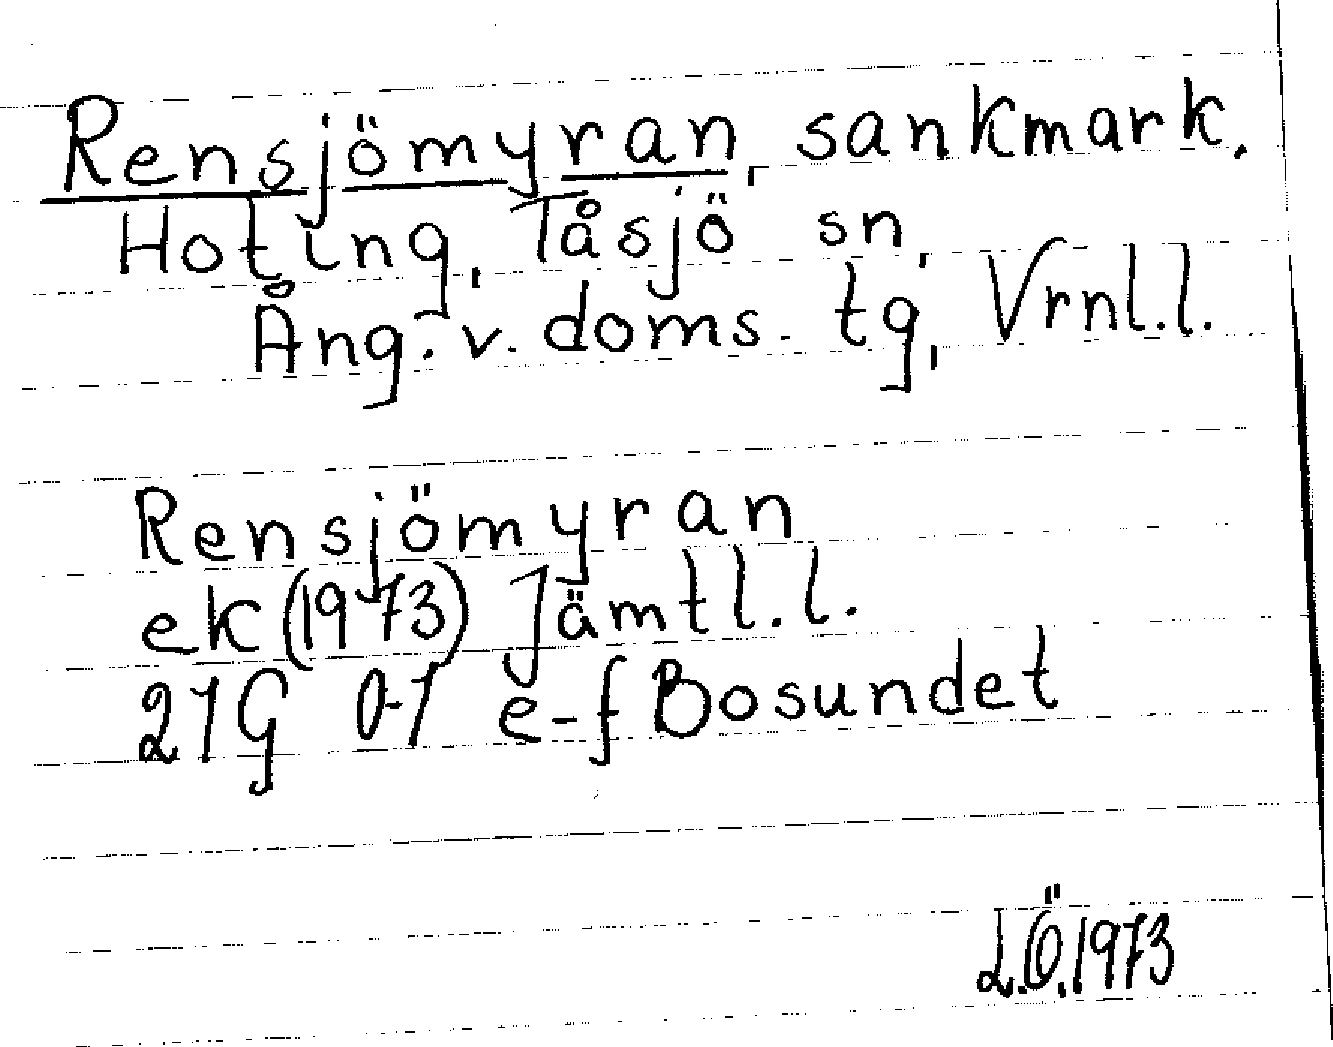 Rensjömyran, sankmark.
Hoting, Tåsjö sn,
Ång. v. doms. tg, Vrnl.l.
Rensjömyran
ek (1973) Jämtl.l.
21G 0-1 e-f Bosundet
L.Ö.1973